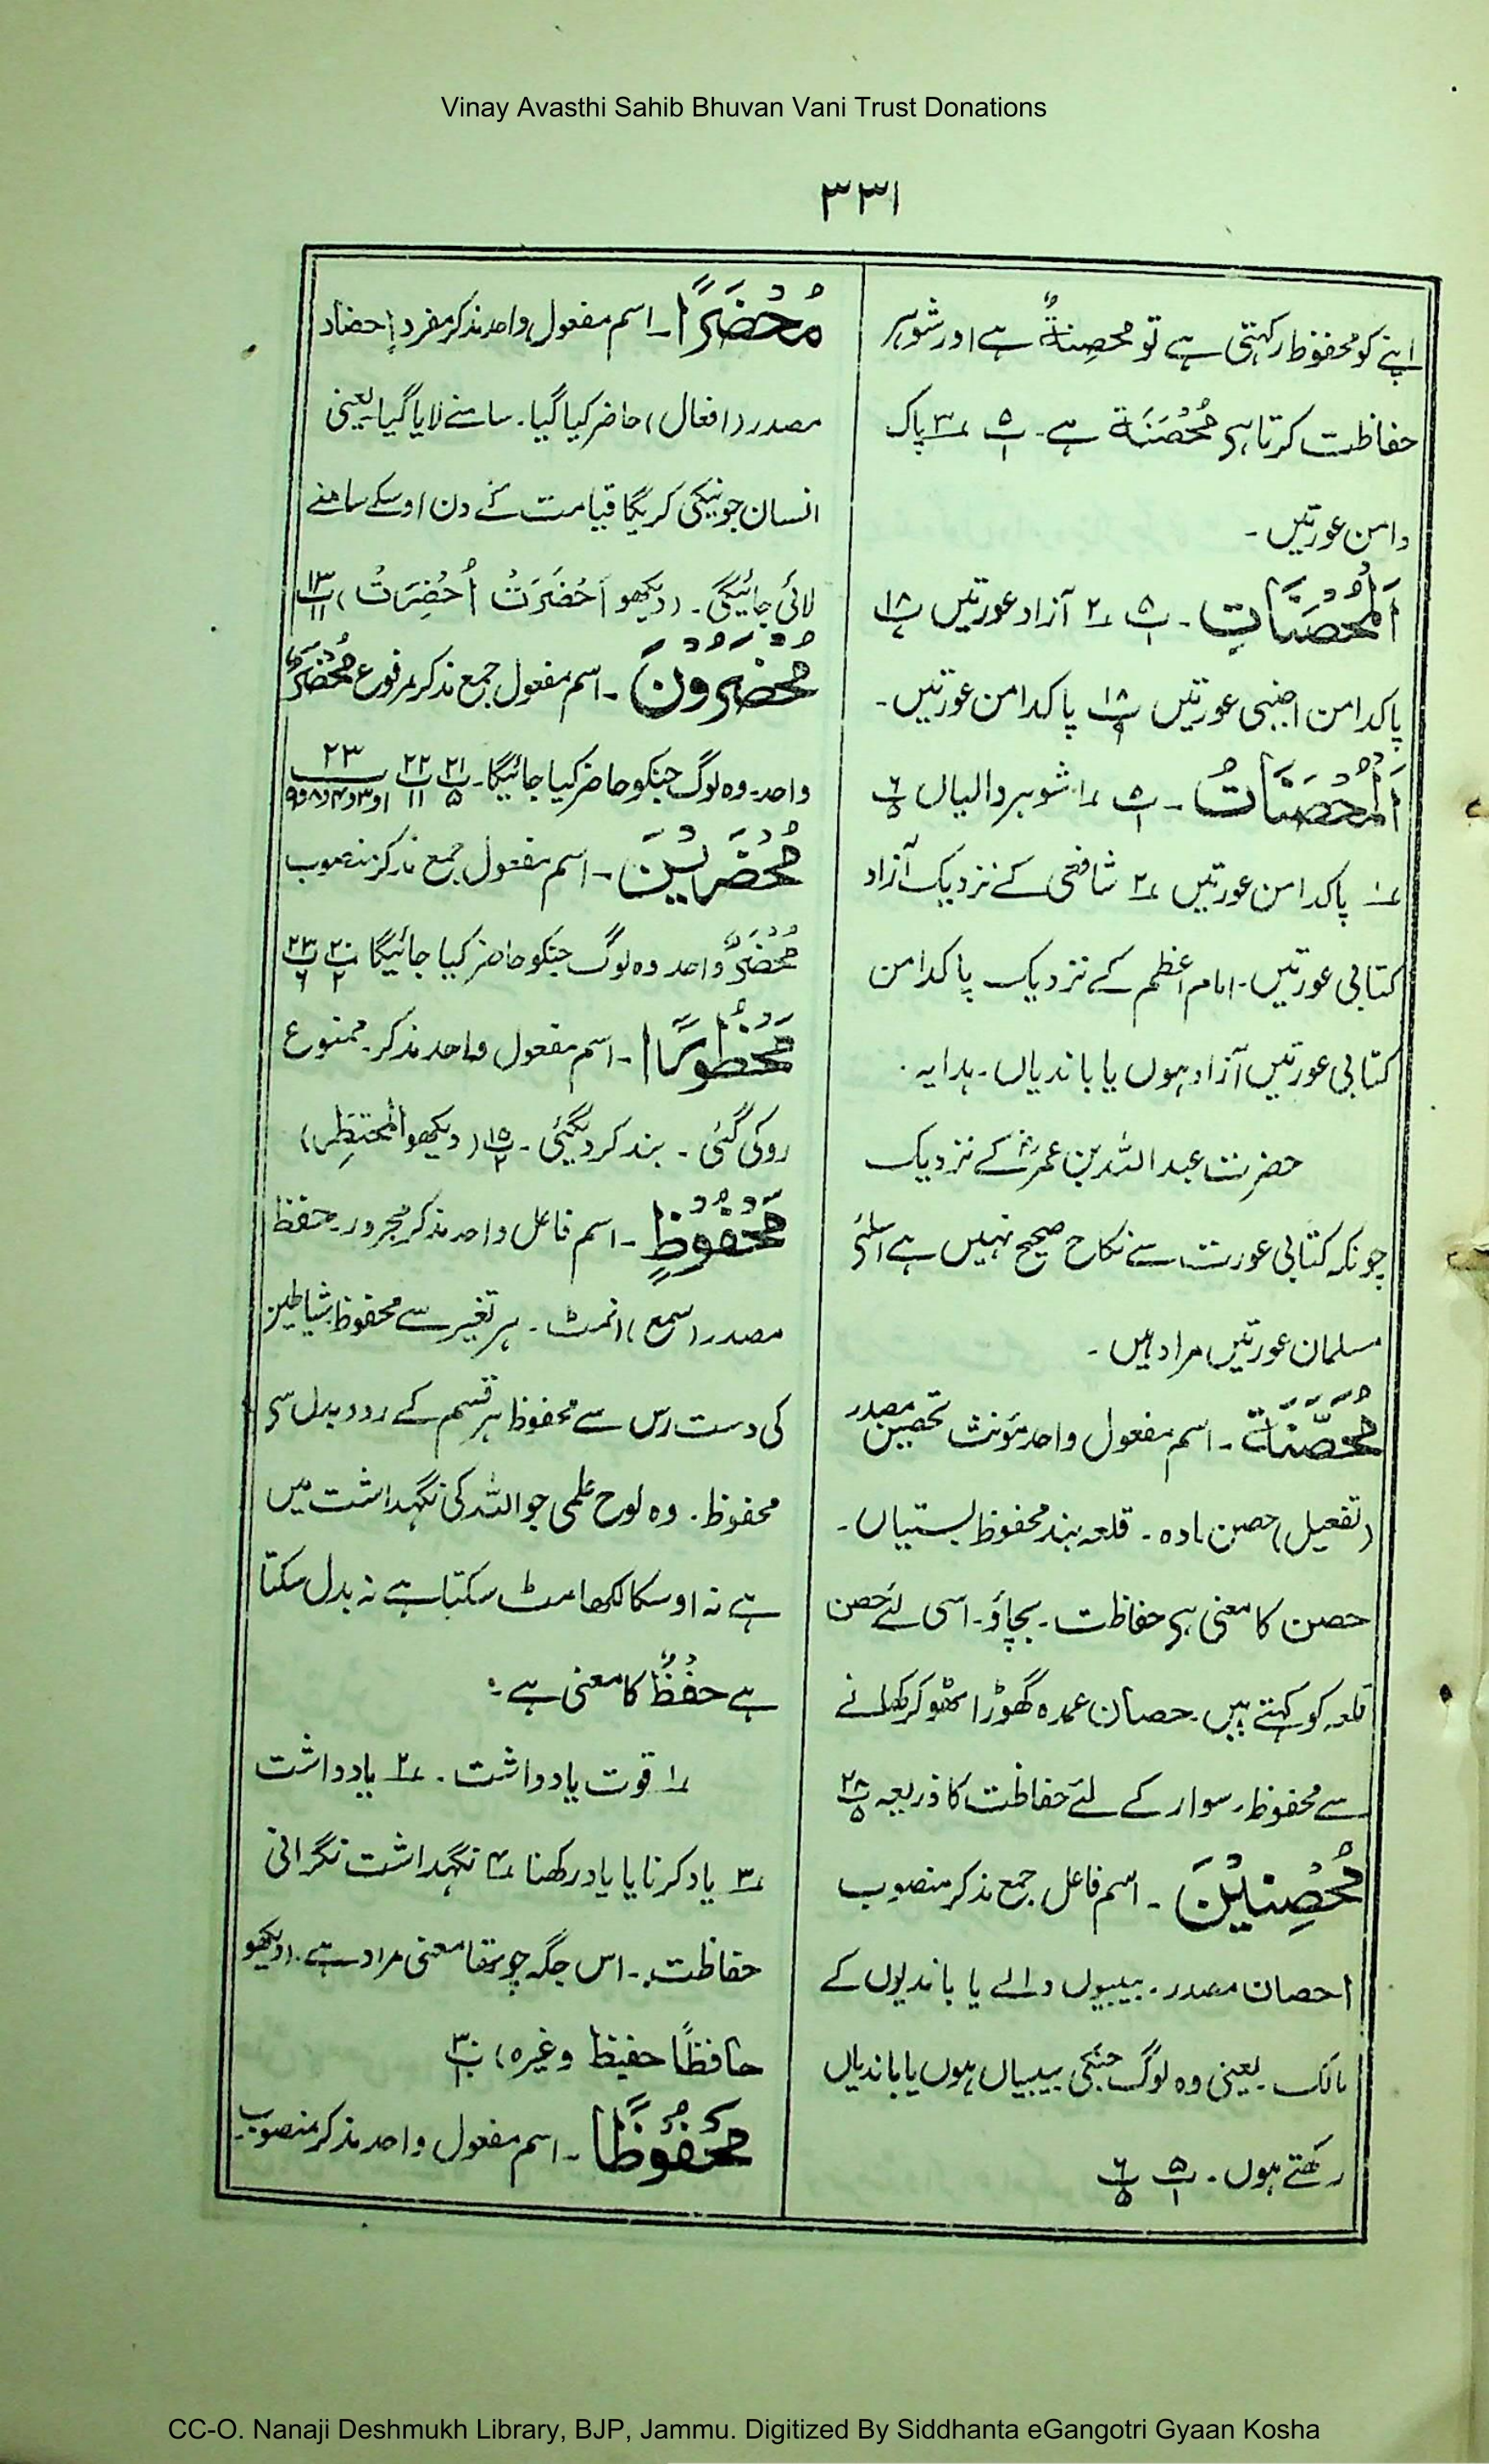 Vinay Avasthi Sahib Bhuvan Vani Trust Donations
۳۳۱
اپنے کو محفوظ رکہتی ہے تو محصِنةٌ ہے اور شوہر
حفاظت کرتا ہی مُحْصَنَة ہے۔ ۵پ۱ ۳ پاک
دامن عورتیں۔
اَلْمُحْصَنَاتِ۔ ۵پ۱ ۲ آزاد عورتیں ۱۸پ
پاکدامن اجنبی عورتیں ۱۸پ۹ پاکدامن عورتیں۔
اَلْمُحْصَنَاتُ۔ ۵پ۱ ۱ شوہر والیاں ۶پ۵
۱ پاکدامن عورتیں ۲ شافعی کے نزدیک آزاد
کتابی عورتیں۔ امام اعظم کے نزدیک پاکدامن
کتابی عورتیں آزاد ہوں یا باندیاں۔ ہدایہ۔
حضرت عبد اللہ بن عمرؓ کے نزدیک
چونکہ کتابی عورت سے نکاح صحیح نہیں ہے اسلئے
مسلمان عورتیں مراد ہیں۔
مُحَصَّنَة۔ اسم مفعول واحد مؤنث تحصین مصدر
(تفعیل) حصن مادہ۔ قلعہ بند محفوظ بستیاں۔
حصن کا معنی ہی حفاظت۔ بچاؤ۔ اسی لئے حصن
قلعہ کو کہتے ہیں۔ حصان عمدہ گھوڑا ٹھوکر کھانے
سے محفوظ۔ سوار کے لئے حفاظت کا ذریعہ ۲۸پ۵
مُحْصِنِيْنَ۔ اسم فاعل جمع مذکر منصوب
احصان مصدر۔ بیبیوں والے یا باندیوں کے
مالک۔ یعنی وہ لوگ جنکی بیبیاں ہوں یا باندیاں
رکھتے ہوں۔ ۵پ۱ ۶پ۵
مُحْضَرًا۔ اسم مفعول واحد مذکر مفرد إحضاد
مصدر (افعال) حاضر کیا گیا۔ سامنے لایا گیا یعنی
انسان جو نیکی کریگا قیامت کے دن اوسکے سامنے
لائی جائیگی۔ (دیکھو اَحْضَرَتْ اُحْضِرَتْ) ۱۳پ۱۱
مُحْضَرُوْنَ۔ اسم مفعول جمع مذکر مرفوع مُحْضَرٌ
واحد۔ وہ لوگ جنکو حاضر کیا جائیگا۔ ۲۱پ۵ ۲۲پ۱۱ ۲۳پ ۱و۳و۴و۸و۹
مُحْضَرِيْنَ۔ اسم مفعول جمع مذکر منصوب
مُحْضَرٌ واحد وہ لوگ جنکو حاضر کیا جائیگا ۲۰پ۲ ۲۳پ۶
مَحْظُوْرًا۔ اسم مفعول واحد مذکر۔ ممنوع
روکی گئی۔ بند کر دیگئی۔ ۱۵پ۲ (دیکھو المحتظِر)
مَحْفُوْظٍ۔ اسم فاعل واحد مذکر مجرور۔ حفظ
مصدر (سمع) انمٹ۔ ہر تغیر سے محفوظ شیاطین
کی دست رس سے محفوظ ہر قسم کے رد و بدل سی
محفوظ۔ وہ لوح علمی جو اللہ کی نگہداشت میں
ہے نہ اوسکا لکھا مٹ سکتا ہے نہ بدل سکتا
ہے حفْظٌ کا معنی ہے:
۱ قوت یادداشت۔ ۲ یادداشت
۳ یاد کرنا یا یاد رکھنا ۴ نگہداشت نگرانی
حفاظت۔ اس جگہ چوتھا معنی مراد ہے۔ (دیکھو
حافظًا حفیظ وغیرہ) ۳۰پ۱۰
مَحْفُوْظًا۔ اسم مفعول واحد مذکر منصوب۔
CC-O. Nanaji Deshmukh Library, BJP, Jammu. Digitized By Siddhanta eGangotri Gyaan Kosha